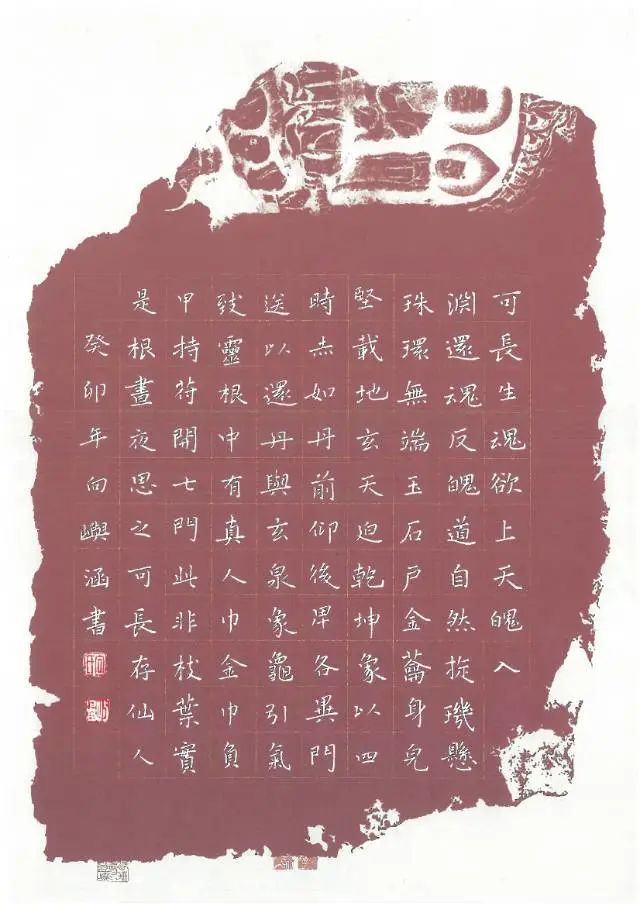 可長生魂欲上天魄入
淵還魂反魄道自然旋璣懸
珠環無端玉石戶金籥身完
堅載地玄天迴乾坤象以四
時赤如丹前仰後卑各異門
送以還丹與玄泉象龜引氣
致靈根中有真人巾金巾負
甲持符開七門此非枝葉實
是根晝夜思之可長存仙人
癸卯年向嶼涵書